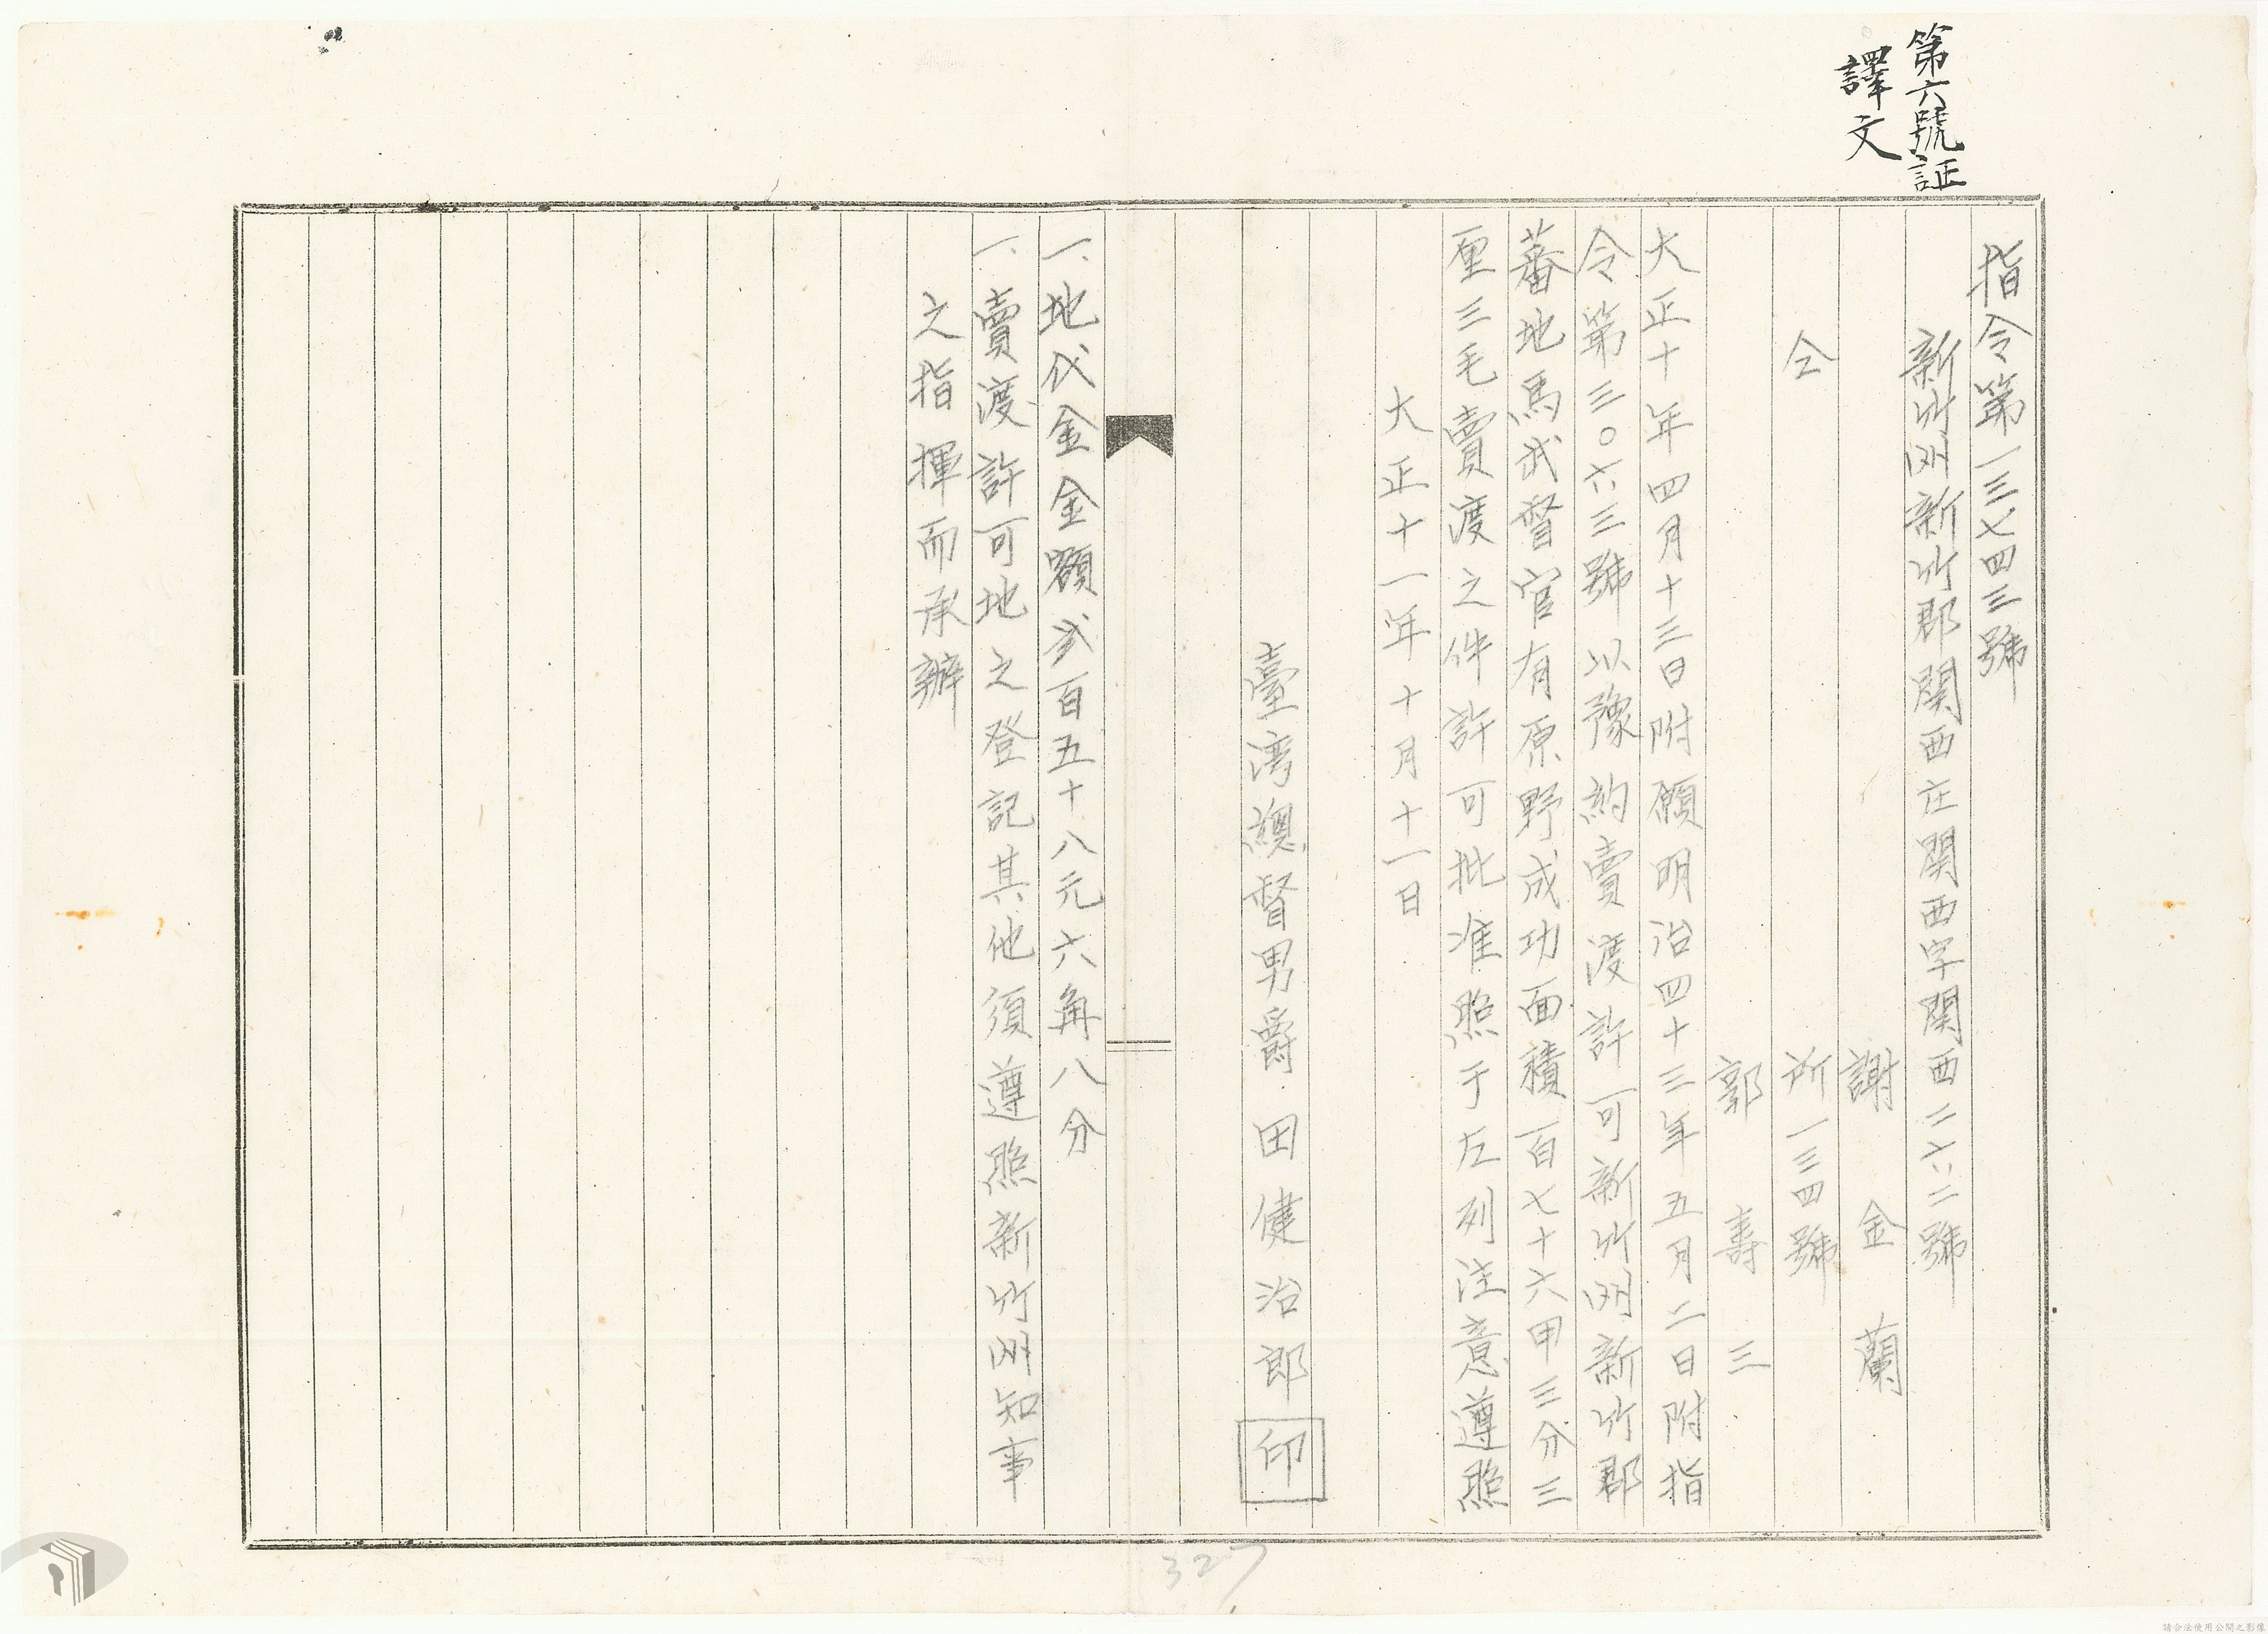 第六號証
譯文
指令第一三七四三號
新竹州新竹郡関西庄関西字関西二六二號
謝金蘭
仝所一三四號
郭壽三
大正十年四月十三日附願明治四十三年五月二日附指
令第三〇六三號以豫約賣渡許可新竹州新竹郡
蕃地馬武督官有原野成功面積百七十六甲三分三
厘三毛賣渡之件許可批准照于左列注意遵照
大正十一年十月十一日
臺湾總督男爵田健治郎印
一、地代金金額弍百五十八元六角八分
一、賣渡許可地之登記其他須遵照新竹州知事
之指揮而承辦
327
請合法使用公開之影像